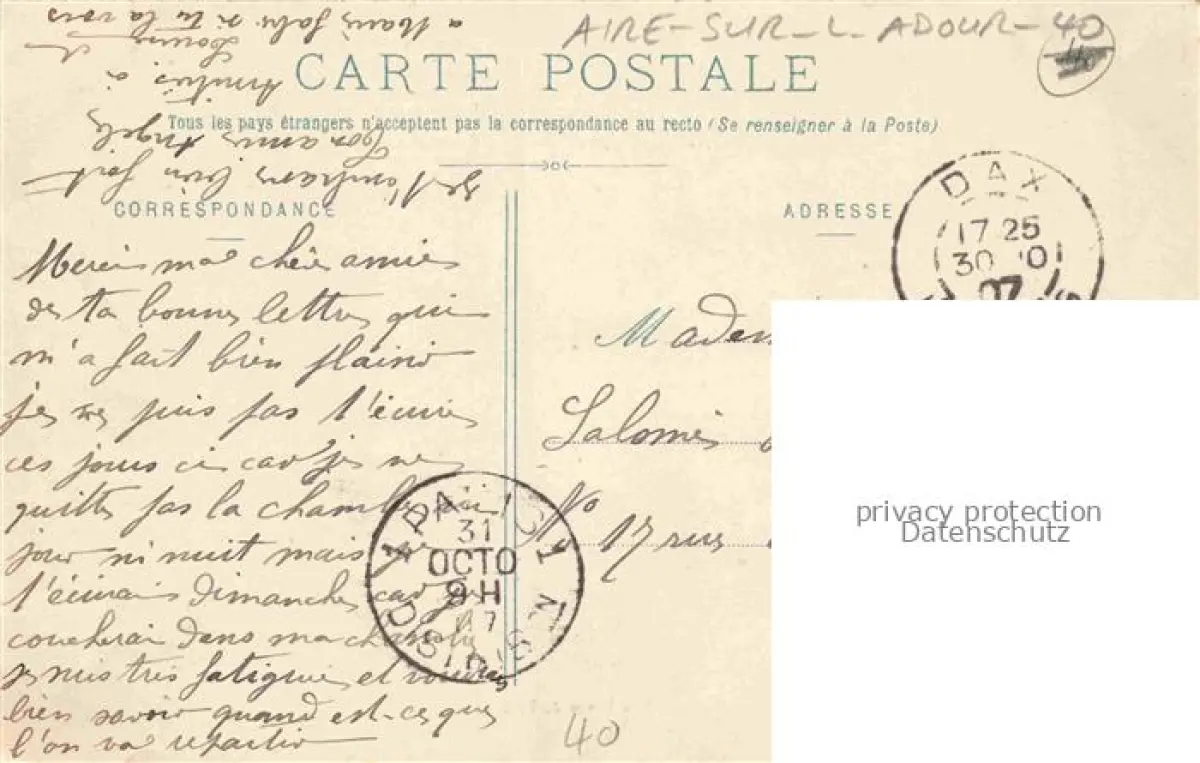 AIRE-SUR-L-ADOUR-40
CARTE POSTALE
Tous les pays étrangers n'acceptent pas la correspondance au recto (Se renseigner à la Poste)
CORRESPONDANCE
Merci ma chérie amie
de ta bonne lettre qui
m'a fait bien plaisir
je ne puis pas t'écrire
ces jours ci car je ne
quitte pas la chambre ni
jour ni nuit mais
t'écrirai dimanche car je
coucherai dans ma chambre
je suis très fatiguée et voudrais
bien savoir quand est-ce que
l'on va repartir
Je t'embrasse bien fort
ton amie Angèle
Amitiés à
Louise et
a Marie Jules si tu la vois
ADRESSE
DAX
17 25
30 10
07
Salomé
No 17 rue
31
OCTO
9H
07
40
privacy protection
Datenschutz